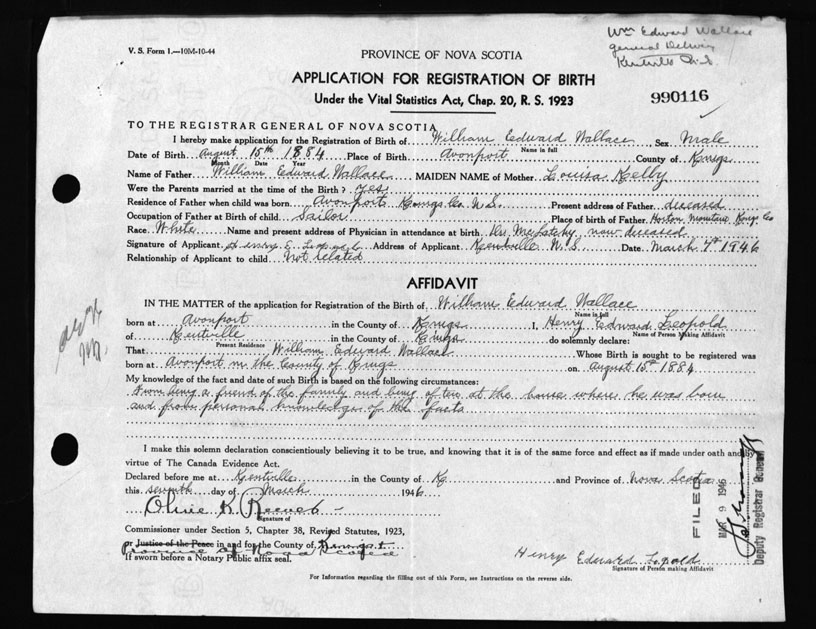 V. S. Form 1.—10M-10-44
Wm Edward Wallace
PROVINCE OF NOVA SCOTIA
General
Kentville N.S.
APPLICATION FOR REGISTRATION OF BIRTH
Under the Vital Statistics Act, Chap. 20, R. S. 1923
990116
TO THE REGISTRAR GENERAL OF NOVA SCOTIA
I hereby make application for the Registration of Birth of William Edward Wallace Sex Male
Name in full
Date of Birth August 15th 1884 Place of Birth Avonport County of Kings
Month Date Year
Name of Father William Edward Wallace MAIDEN NAME of Mother Louisa Kelby
Were the Parents married at the time of the Birth? Yes
Residence of Father when child was born Avonport Kings Co. N.S. Present address of Father deceased
Occupation of Father at Birth of child Sailor Place of birth of Father Horton Kings Co
Race White Name and present address of Physician in attendance at birth now deceased
Signature of Applicant Henry E. Leopold Address of Applicant Kentville N.S. Date March 7th 1946
Relationship of Applicant to child Not related
AFFIDAVIT
IN THE MATTER of the application for Registration of the Birth of William Edward Wallace
Name in full
born at Avonport in the County of Kings I, Henry Edward Leopold
Name of Person Making Affidavit
of Kentville in the County of Kings do solemnly declare:
Present Residence
That William Edward Wallace Whose Birth is sought to be registered was
born at Avonport in the County of Kings on August 15th 1884
My knowledge of the fact and date of such Birth is based on the following circumstances:
From being a friend of the family and being at the house where he was born
and from personal knowledge of the facts
I make this solemn declaration conscientiously believing it to be true, and knowing that it is of the same force and effect as if made under oath and by
virtue of The Canada Evidence Act.
Declared before me at Kentville in the County of K and Province of Nova Scotia
this seventh day of March 1946
Olive K. Reeves
Signature of
Commissioner under Section 5, Chapter 38, Revised Statutes, 1923,
or Justice of the Peace in and for the County of Kings
Province of Nova Scotia
If sworn before a Notary Public affix seal.
Henry Edward Leopold
Signature of Person making Affidavit
For Information regarding the filling out of this Form, see Instructions on the reverse side.
FILED
MAR 9 1946
Deputy Registrar General